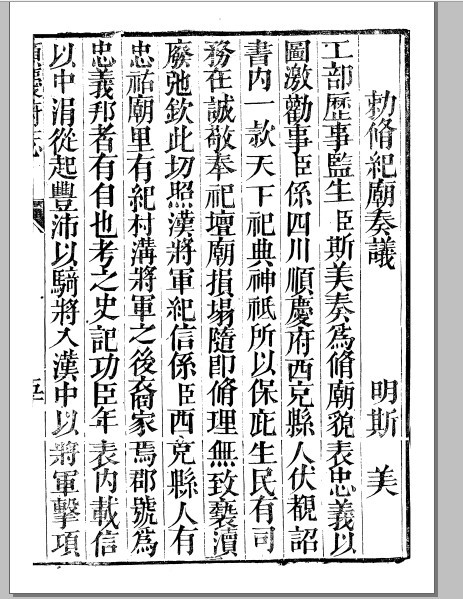 勅脩紀廟奏議 明斯 美
工部歷事監生臣斯美奏爲脩廟貌表忠義以
圖激勸事臣係四川順慶府西充縣人伏覩詔
書內一款天下祀典神祇所以保庇生民有司
務在誠敬奉祀壇廟損塌隨即脩理無致褻瀆
廢弛欽此切照漢將軍紀信係臣西充縣人有
忠祐廟里有紀村溝將軍之後裔家焉郡號爲
忠義邦者有自也考之史記功臣年表內載信
以中涓從起豐沛以騎將入漢中以將軍擊項
順慶府志
五